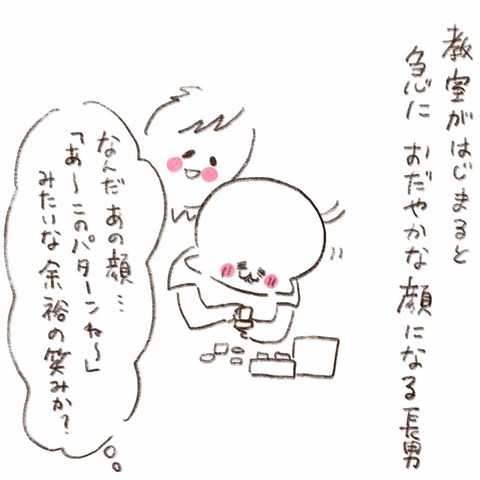 教室がはじまると
急に おだやかな顔になる長男
なんだ あの顔…
「あ〜このパターンね〜」
みたいな 余裕の笑みか?